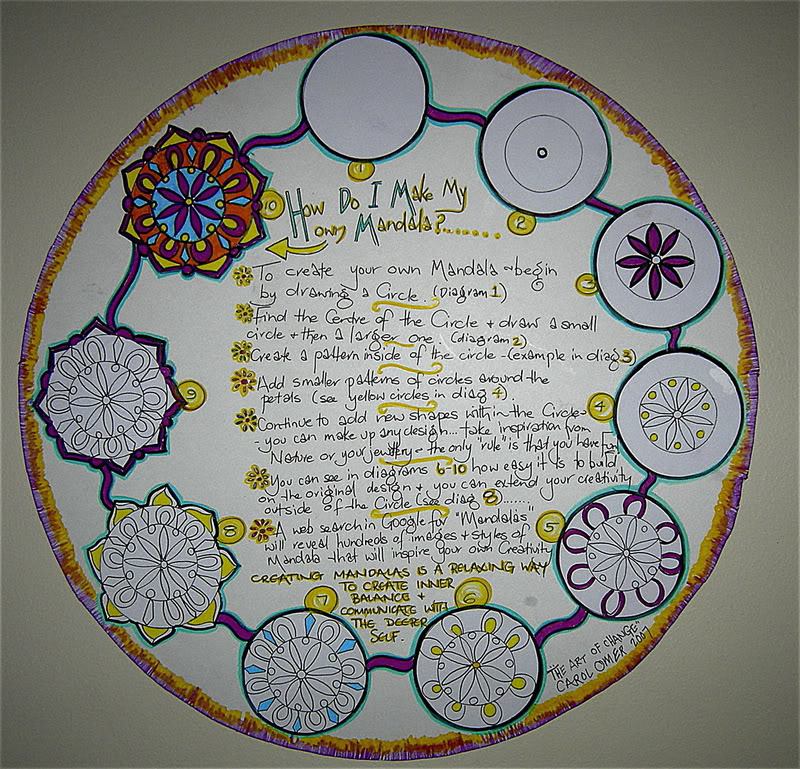 1
2
3
4
5
6
7
8
9
10
How Do I Make My
own Mandala?.......
To create your own Mandala begin
by drawing a Circle. (Diagram 1)
Find the Centre of the Circle + draw a small
circle + then a larger one. (diagram 2)
Create a pattern inside of the circle - (example in diag 3)
Add smaller patterns of circles around the
petals (see yellow circles in diag 4).
Continue to add new shapes within the Circle-
- you can make up any design... take inspiration from
Nature or your jewellery - the only "rule" is that you have fun
You can see in diagrams 6-10 how easy it is to build
on the original design + you can extend your creativity
outside of the Circle (see diag 8).......
A web search in Google for "Mandalas"
will reveal hundreds of images + styles of
Mandala that will inspire your own Creativity
CREATING MANDALAS IS A RELAXING WAY
TO CREATE INNER
BALANCE +
COMMUNICATE WITH
THE DEEPER
SELF.
"THE ART OF CHANGE"
CAROL OMER 2007